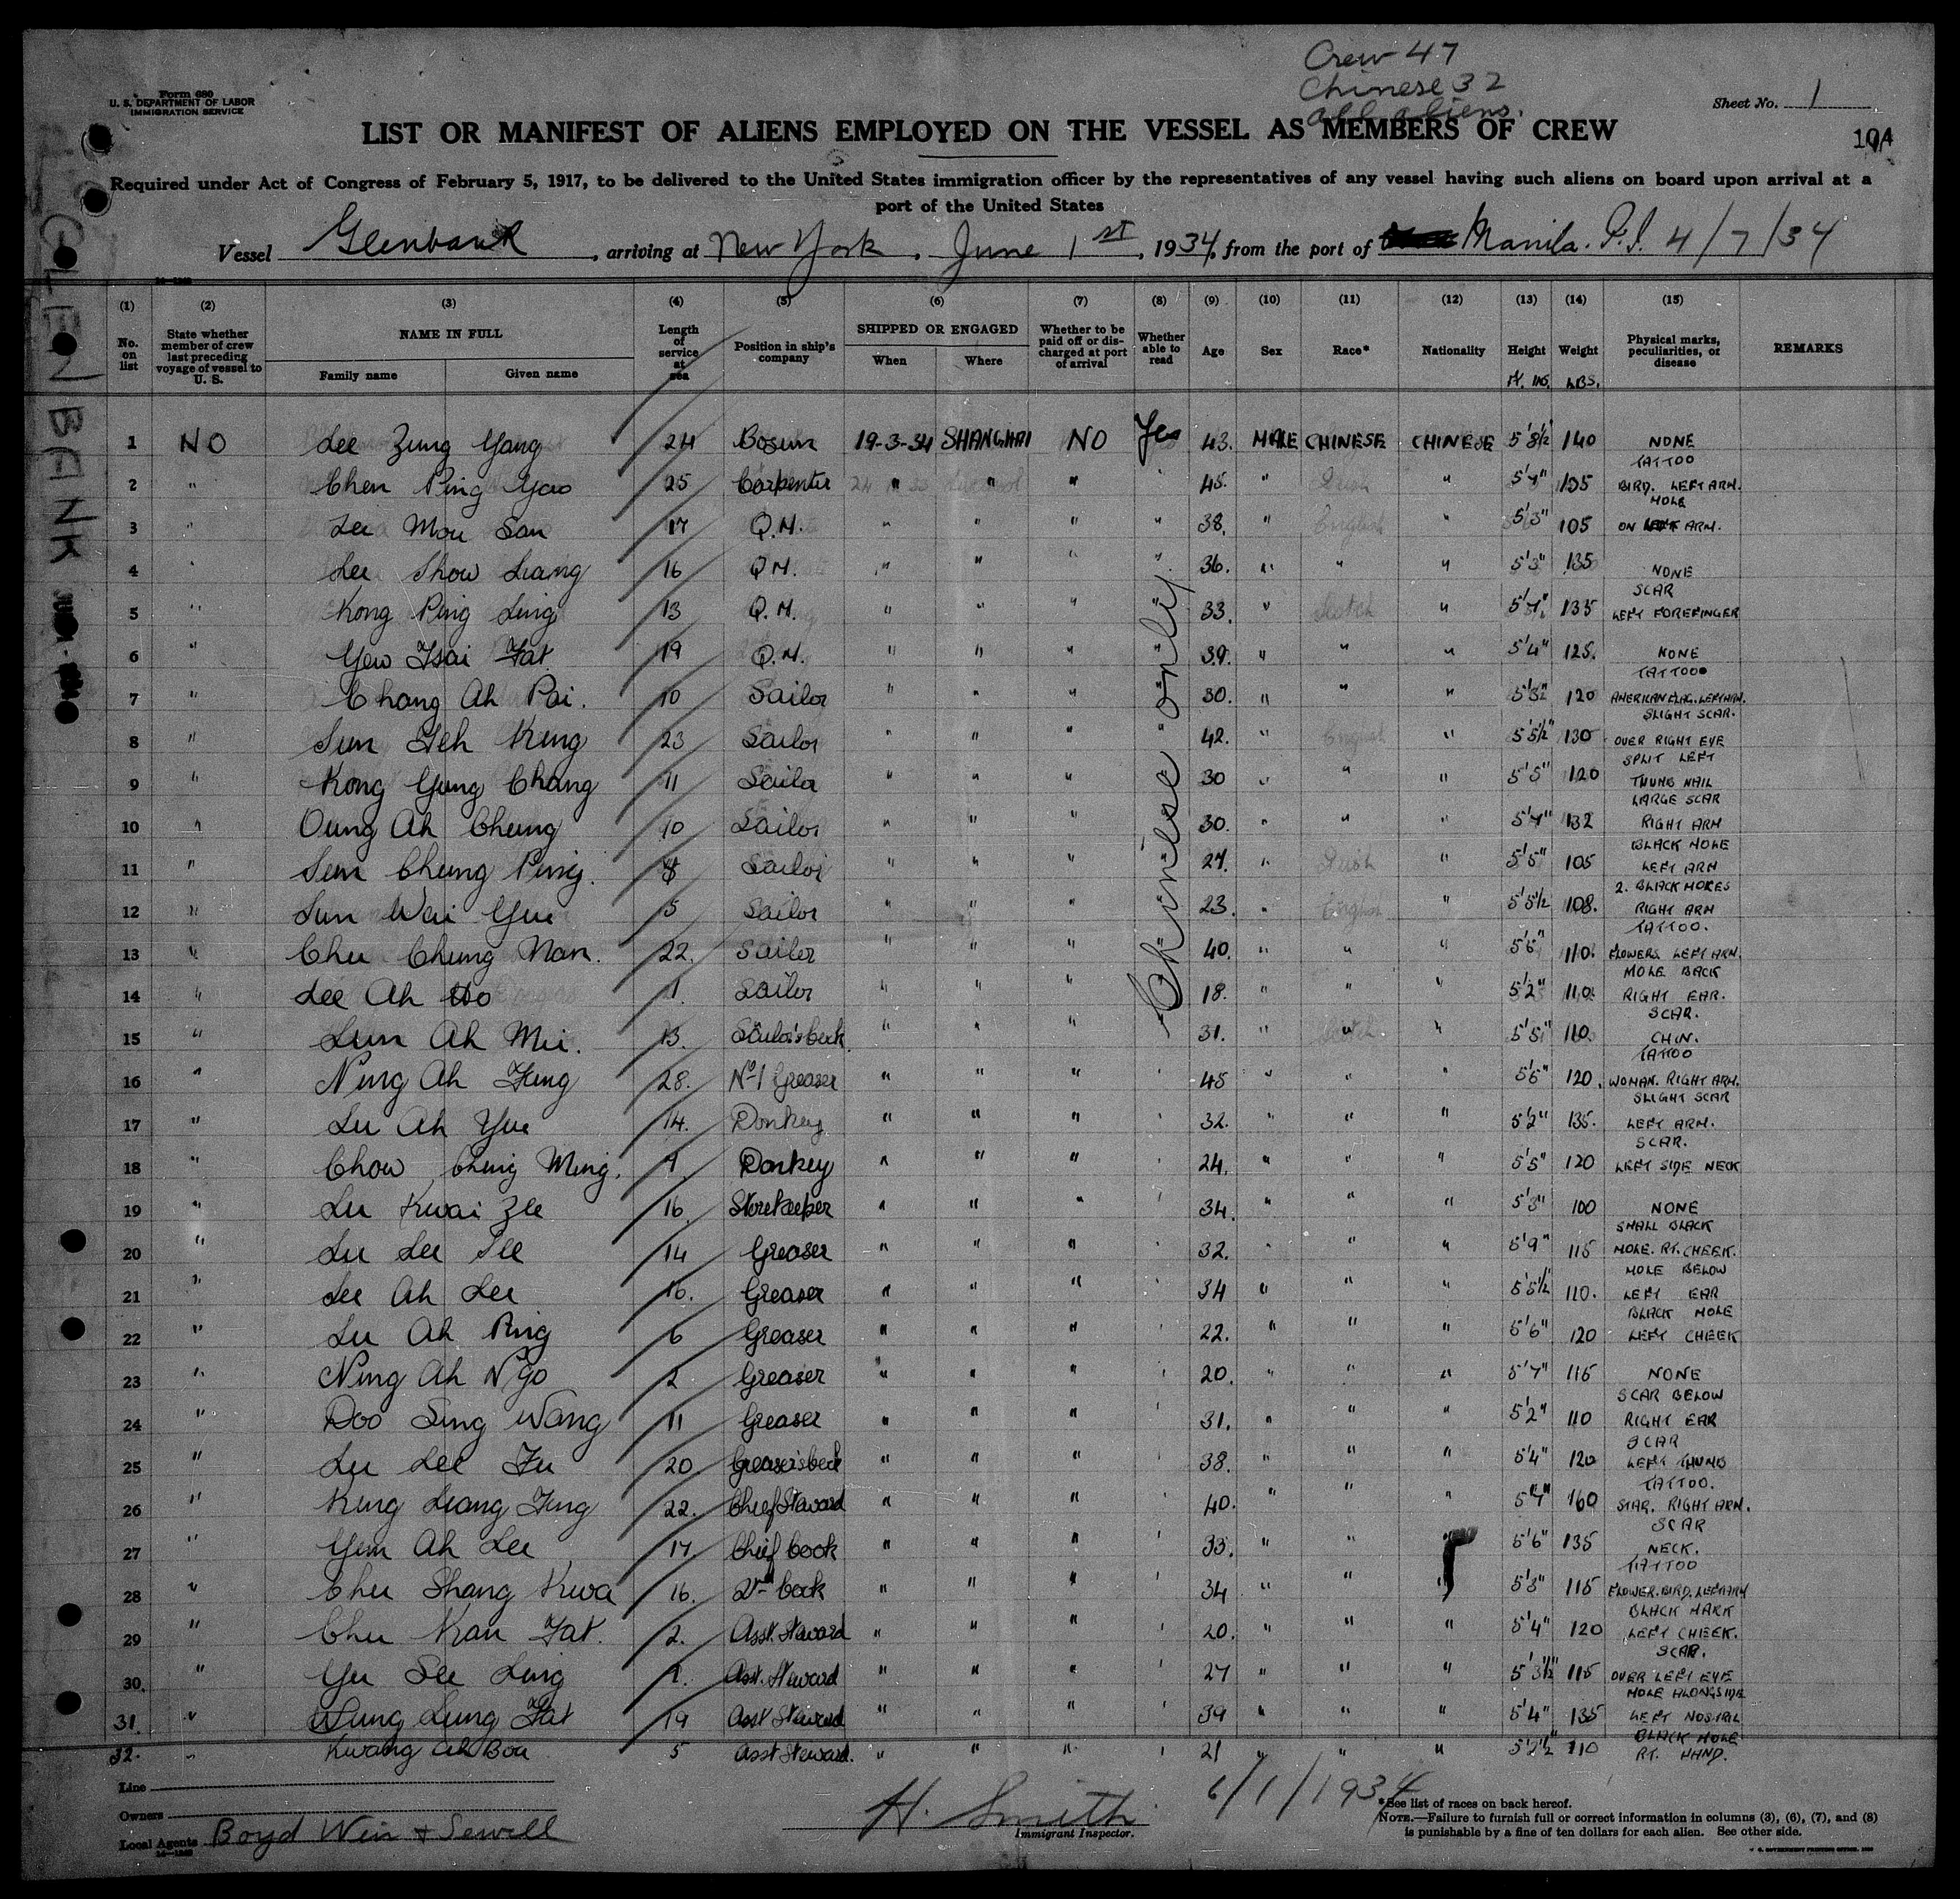 Crew 47
Chinese 32
all aliens.
Form 680
U. S. DEPARTMENT OF LABOR
IMMIGRATION SERVICE
Sheet No. 1
LIST OR MANIFEST OF ALIENS EMPLOYED ON THE VESSEL AS MEMBERS OF CREW
Required under Act of Congress of February 5, 1917, to be delivered to the United States immigration officer by the representatives of any vessel having such aliens on board upon arrival at a
port of the United States
Vessel Glenbank, arriving at New York, June 1st, 1934, from the port of Manila. P.I. 4/7/34
GLEN BANK
(1) (2) (3) (4) (5) (6) (7) (8) (9) (10) (11) (12) (13) (14) (15)
No. on list
State whether member of crew last preceding voyage of vessel to U. S.
NAME IN FULL
Family name Given name
Length of service at sea
Position in ship's company
SHIPPED OR ENGAGED
When Where
Whether to be paid off or discharged at port of arrival
Whether able to read
Age
Sex
Race*
Nationality
Height Ft. ins.
Weight LBS.
Physical marks, peculiarities, or disease
REMARKS
Chinese only
1 NO Lee Zung Yang 24 Bosun 19-3-34 SHANGHAI NO Yes 43. MALE CHINESE CHINESE 5'8½ 140 NONE
2 " Chen Ping Yao 25 Carpenter " " " " 45. " " 135 TATTOO BIRD. LEFT ARM.
3 " Lee Mou San 17 Q.M. " " " " 38. " " 5'3" 105 MOLE ON ARM.
4 " Lee Show Liang 16 Q.M. " " " " 36. " " " 5'3" 135 NONE
5 " Kong Ping Ling 13 Q.M. " " " 33. " " 135 SCAR LEFT FOREFINGER
6 " Yew Tsai Fat 19 Q.M. " " " 39. " " " 5'4" 125. NONE
7 " Chang Ah Pai. 10 Sailor " " " 30. " " " 120 TATTOO AMERICAN FLAG. LEFT ARM.
8 " Sun Yeh Kung 23 Sailor " " " 42. " " 5'5½ 130 SLIGHT SCAR. OVER RIGHT EYE
9 " Kong Yung Chang 11 Sailor " " " 30 " " " 5'5" 120 SPLIT LEFT THUMB NAIL
10 " Oung Ah Chung 10 Sailor " " " 30. " " " 132 LARGE SCAR RIGHT ARM
11 " Sun Chung Ping. Sailor " " " 27. " " 5'5" 105 BLACK MOLE LEFT ARM
12 " Sun Wai Yue 5 Sailor " " " 23. " " 5'5½ 108. 2. BLACK MOLES RIGHT ARM
13 " Chu Chung Nan. 22. Sailor " " " 40. " " " 110. TATTOO. FLOWERS LEFT ARM.
14 " Lee Ah 1. Sailor " " " 18. " " " 5'2" 110 MOLE BACK RIGHT EAR.
15 " Lun Ah Mui. 13. Sailor's Cook. " " " 31. " " " 110 SCAR. CHIN.
16 " Ning Ah Fung 28. No 1 Greaser " " " 45 " " " 120. TATTOO WOMAN. RIGHT ARM.
17 " Lu Ah Yue 14. Donkey " " " 32. " " " 5'2" 135. SLIGHT SCAR LEFT ARM.
18 " Chow Ching Ming. Donkey " " " 24. " " " 5'5" 120 SCAR. LEFT SIDE NECK
19 " Lu Kwai Zee 16 Storekeeper " " " 34. " " " 5'3" 100 NONE
20 " Lu Lee See 14 Greaser " " " 32. " " " 5'9" 115 SMALL BLACK MOLE. RT. CHEEK.
21 " Lee Ah Lee 16. Greaser " " " 34 " " " 5'5½ 110. MOLE BELOW LEFT EAR
22 " Lu Ah Ping 6 Greaser " " " 22. " " " 5'6" 120 BLACK MOLE LEFT CHEEK
23 " Ning Ah N'go 2 Greaser " " " 20. " " " 5'7" 115 NONE
24 " Doo Sing Wang 11 Greaser " " " 31. " " " 5'2" 110 SCAR BELOW RIGHT EAR
25 " Lu Lee Fu 20 Greaser's Cook " " " 38. " " " 5'4" 120 SCAR LEFT THUMB
26 " Kung Liang Fung 22. Chief Steward " " " 40. " " " 160 TATTOO. STAR. RIGHT ARM.
27 " Yun Ah Lee 17 Chief Cook " " " 33. " " 5'6" 135 SCAR NECK.
28 " Chu Shang Kwa 16. 2nd Cook " " " 34 " " " 5'3" 115 TATTOO FLOWER. BIRD. LEFT ARM
29 " Chu Kan Fat. 2. Asst. Steward " " " 20. " " " 5'4" 120 BLACK MARK LEFT CHEEK.
30. " Yu See Ling Asst. Steward " " " 27 " " " 5'3½" 115 SCAR. OVER LEFT EYE
31. " Lung Fat 19 Asst Steward " " " 39 " " " 5'4" 135 MOLE ALONGSIDE LEFT NOSTRIL
32. " Kwang Ah Boa 5 Asst Steward. " " " 21 " " " 5'2½" 110 BLACK MOLE RT. HAND.
Line
Owners
Local Agents Boyd Weir & Sewell
H. Smith
Immigrant Inspector.
6/1/1934
*See list of races on back hereof.
NOTE.—Failure to furnish full or correct information in columns (3), (6), (7), and (8)
is punishable by a fine of ten dollars for each alien. See other side.